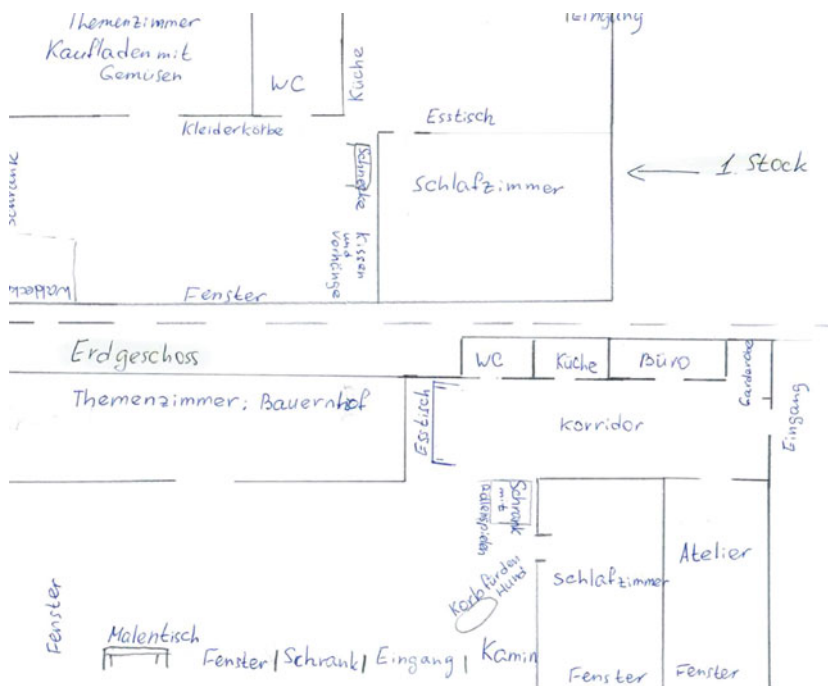 Themenzimmer
Kaufladen mit
Gemüsen
WC
Küche
Kleiderkörbe
Esstisch
Schlafzimmer
1. Stock
Schrank
Schnecke
Kissen
und
Vorhänge
Fenster
Erdgeschoss
WC
Küche
Büro
Garderobe
Themenzimmer: Bauernhof
Esstisch
Korridor
Eingang
Schrank
mit
Schlafzimmer
Atelier
Korb für den
Hund
Fenster
Malentisch
Fenster | Schrank | Eingang |
Kamin
Fenster
Fenster